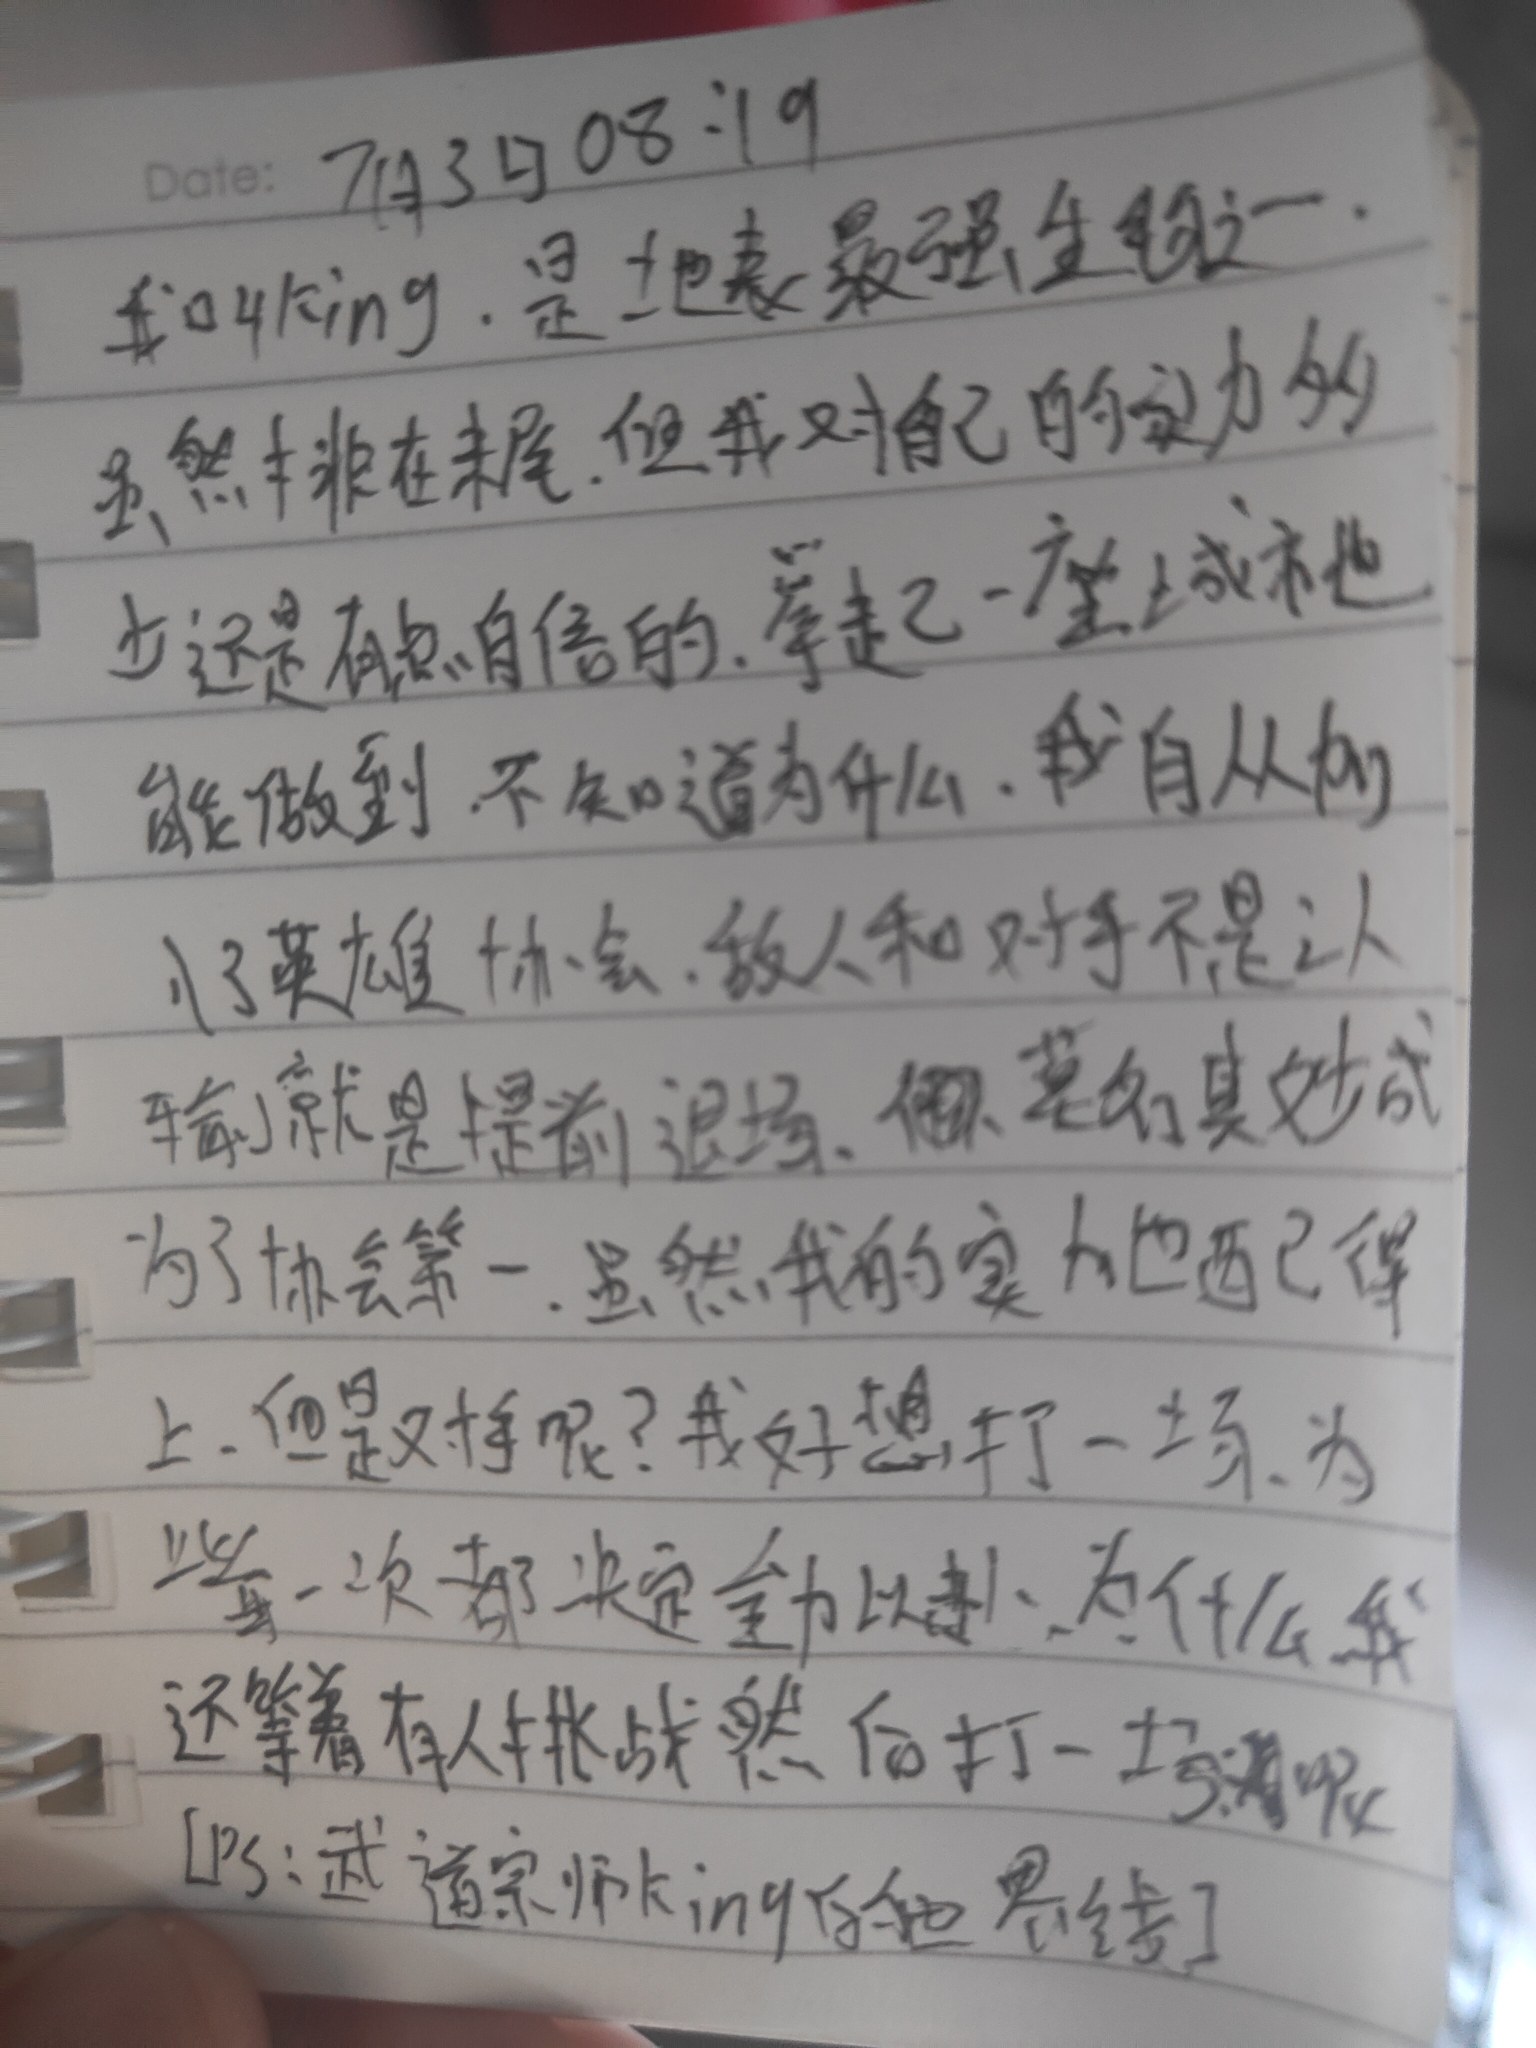 Date: 7月3日 08:19
我叫King.是地表最强生物之一.
虽然排在末尾.但我对自己的实力多
少还是有点自信的.举起一座城市也
能做到.不知道为什么.我自从加
入了英雄协会.敌人和对手不是认
输就是提前退场、但莫名其妙成
为了协会第一.虽然我的实力也配得
上.但是对手呢?我好想打一场、为
此每一次都决定全力以赴、为什么我
还等着有人挑战然后打一场呢
[PS:武道宗师King的世界线]